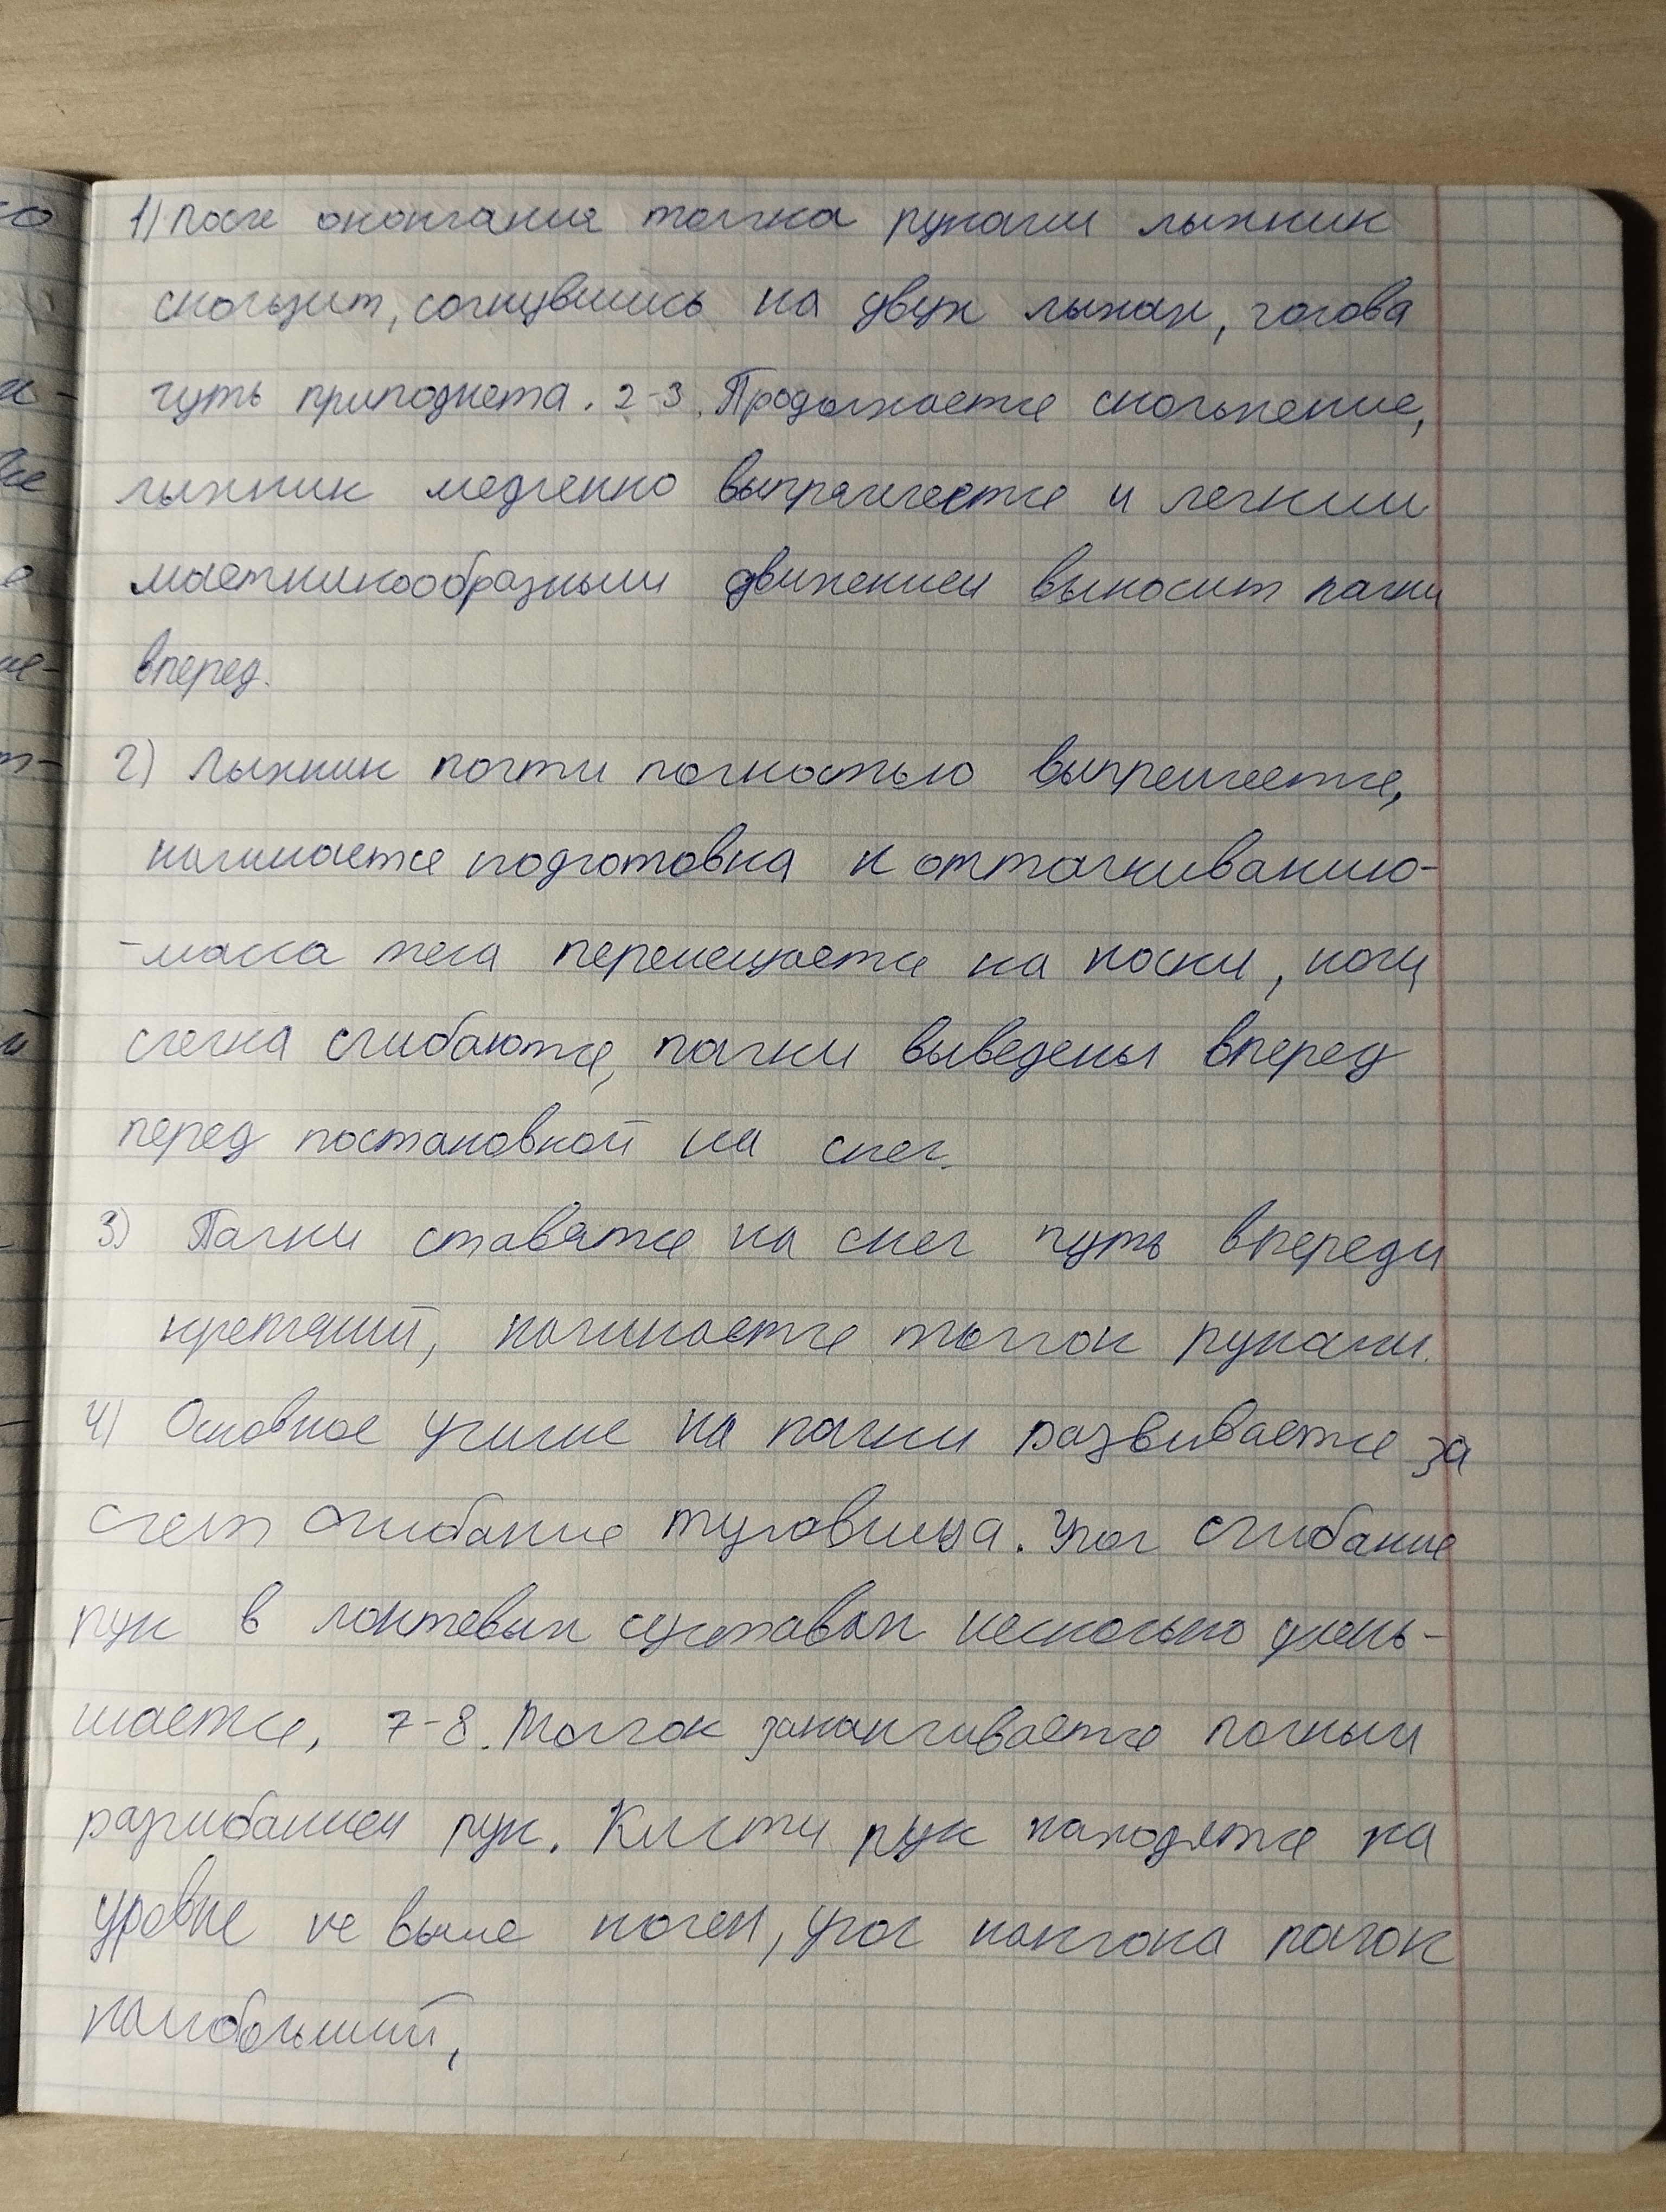 1) После окончания толчка руками лыжник
скользит, согнувшись на двух лыжах, голова
чуть приподнета. 2-3. Продолжается скольжение,
лыжник медленно выпрямляется и легким
маетникообразным движением выносит палки
вперед.
2) Лыжник почти полностью выпрямляется,
начинается подготовка к отталкиванию-
-масса тела перемещается на носки, ноги
слегка сгибаются, палки выведены вперед
перед постановкой на снег.
3) Палки ставятся на снег чуть впереди
креплений, начинается толчок руками.
4) Основное усилие на палки развивается за
счет сгибание туловища. Угол сгибание
рук в локтевых суставах несколько умень-
шается, 7-8. Толчок заканчивается полным
разгибанием рук. Кисти рук находятся на
уровне не выше колен, угол наклона палок
наибольший,